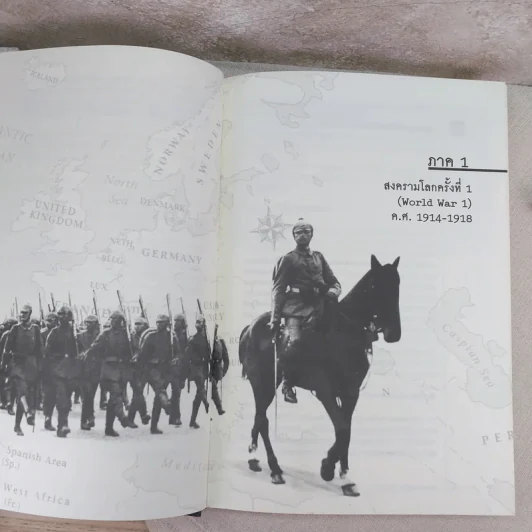 NORWAY
SWEDEN
North
Sea
DENMARK
UNITED
KINGDOM
NETH.
BELG.
GERMANY
LUX
Spanish Area
(Sp.)
West Africa
(Fr.)
ภาค 1
สงครามโลกครั้งที่ 1
(World War 1)
ค.ศ. 1914-1918
Caspian Sea
PER